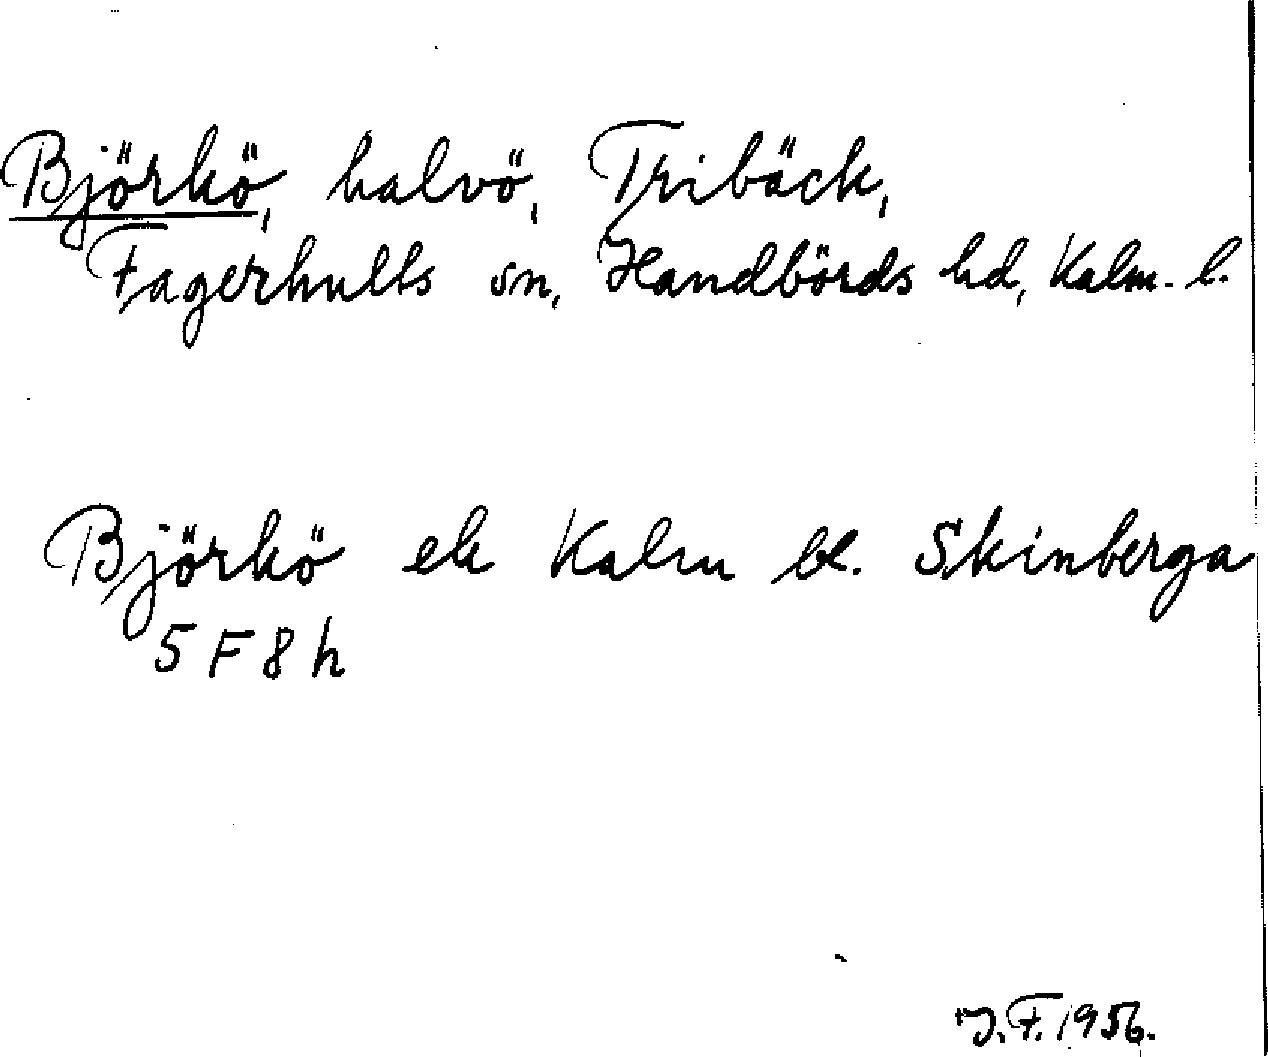 Björkö, halvö, Tribäck,
Fagerhults sn, Handbörds hd, Kalm. l.
Björkö ek Kalm bl. Skinberga
5 F 8 h
J.F. 1956.